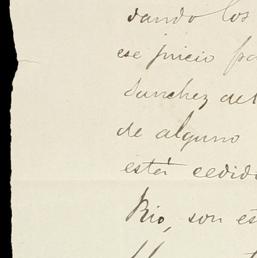 dando los
ese juicio pa
Sanchez del
de alguno
está cedid
Rio, son es